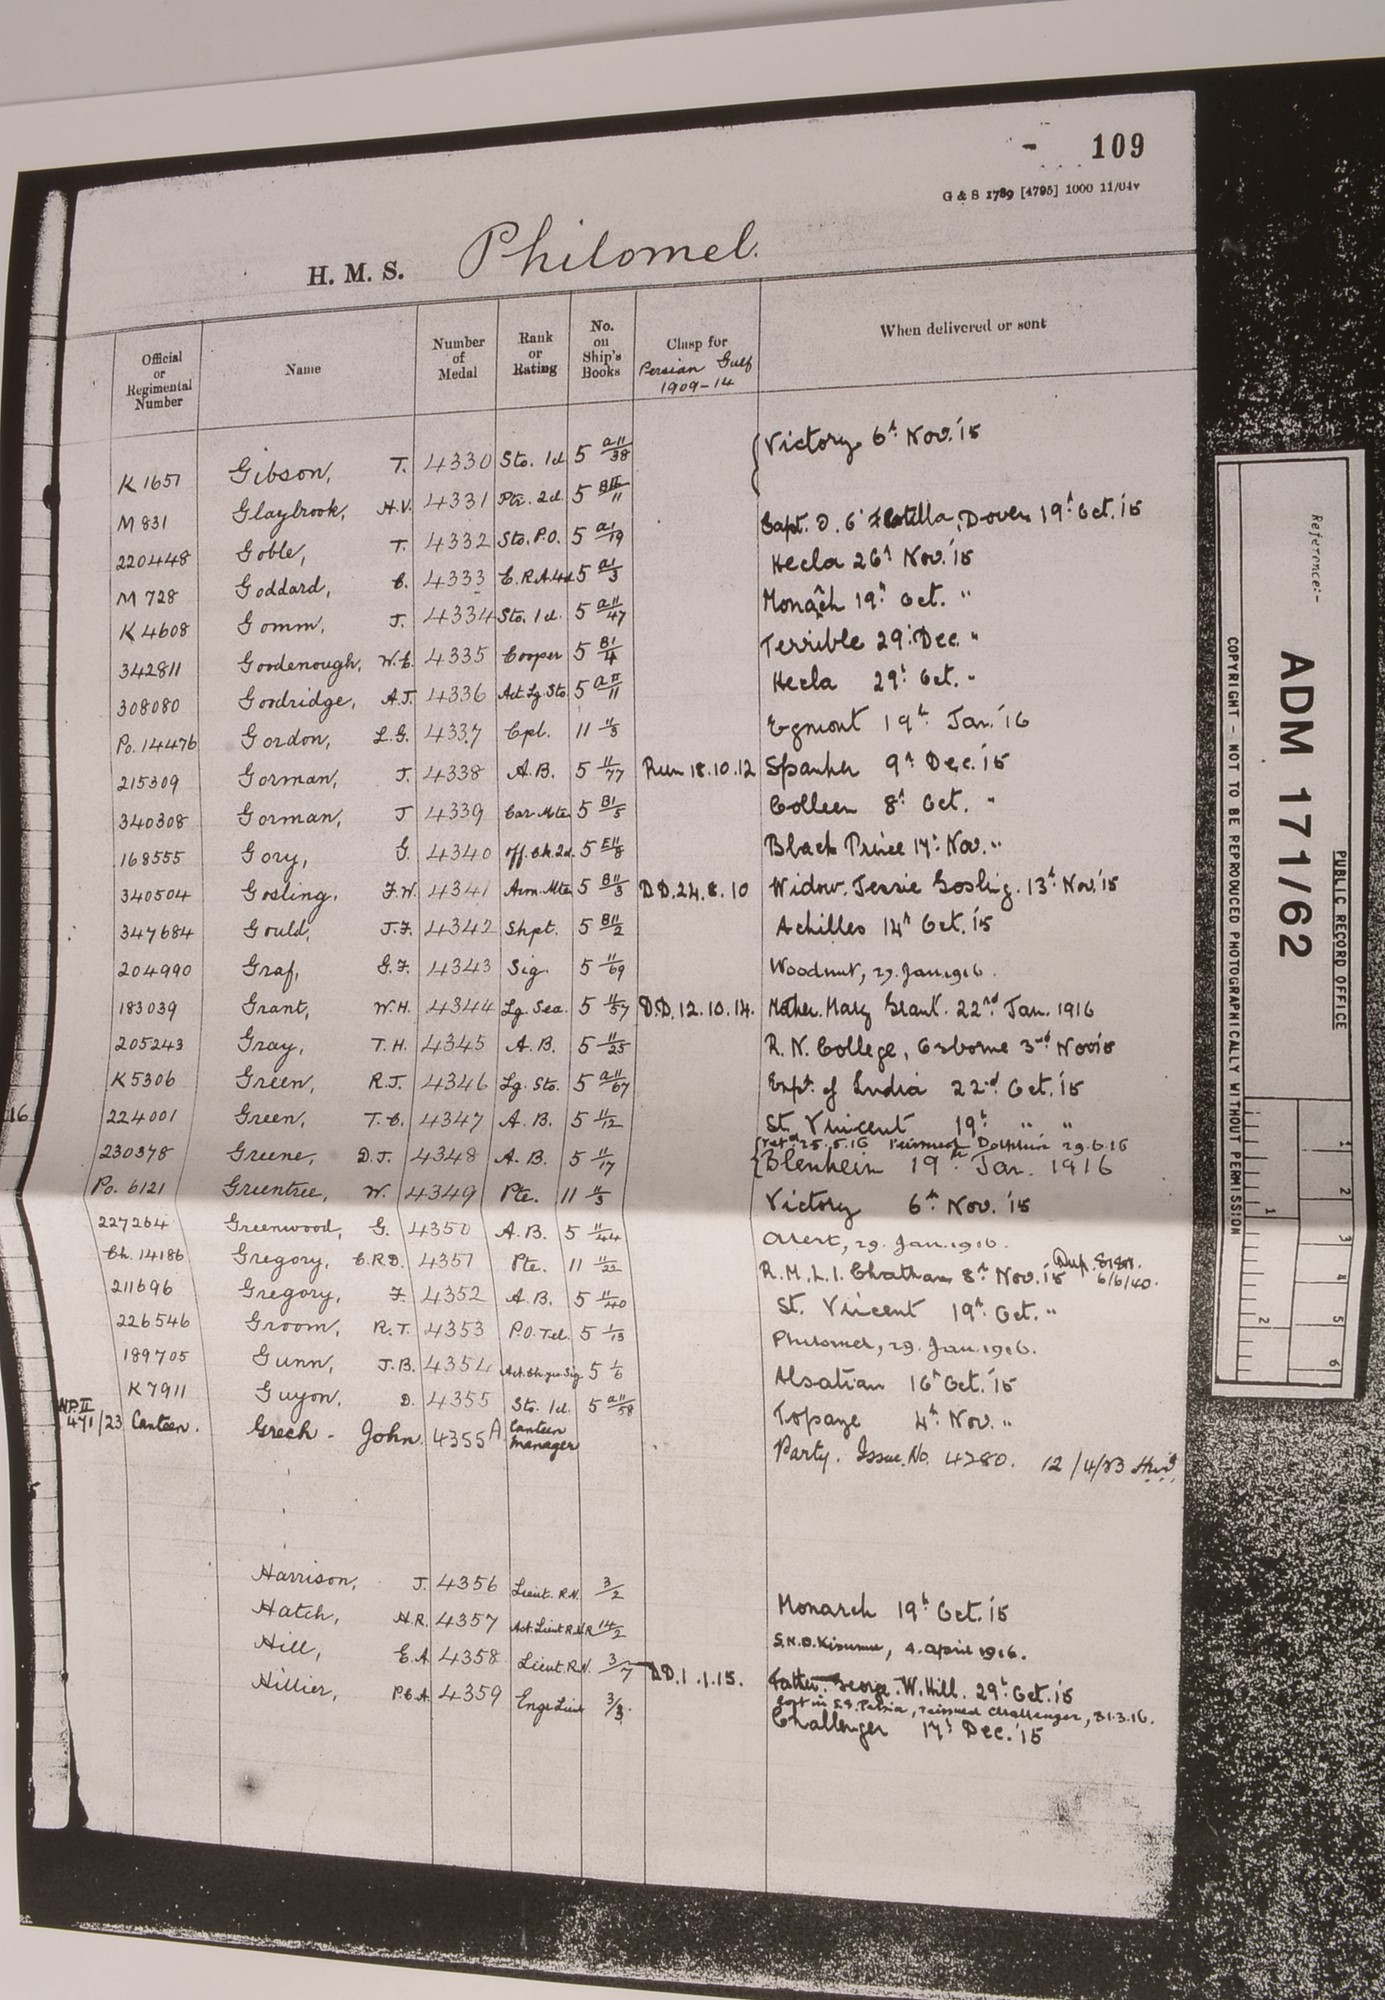 109
G & S 1789 [4795] 1000 11/04v
H. M. S. Philomel.
Official or Regimental Number
Name
Number of Medal
Rank or Rating
No. on Ship's Books
Clasp for Persian Gulf 1909-14
When delivered or sent
K 1651 Gibson, T. 4330 Sto. 1cl 5 a11/38 Victory 6th Nov. '15
M 831 Glaybrook, H.V. 4331 Pte. 2cl 5 BII/11
220448 Goble, T. 4332 Sto. P.O. 5 a1/19 Capt. D. 6th Flotilla, Dover 19th Oct. 15
M 728 Goddard, C. 4333 E.R.A. 4cl 5 a1/3 Hecla 26th Nov. '15
K 4608 Gomm, J. 4334 Sto. 1cl. 5 a11/47 Monarch 19th Oct. "
342811 Goodenough, W.C. 4335 Cooper 5 B1/4 Terrible 29th Dec. "
308080 Goodridge, A.J. 4336 Act. Lg. Sto. 5 a11/11 Hecla 29th Oct. "
Po. 14476 Gordon, L.G. 4337 Cpl. 11 11/3 Egmont 19th Jan. '16
215309 Gorman, J. 4338 A.B. 5 11/77 Run 18.10.12 Spanker 9th Dec. '15
340308 Gorman, J 4339 Car. Mte 5 B1/5 Colleen 8th Oct. "
168555 Gory, G. 4340 Off. Ck. 2cl. 5 E11/8 Black Prince 17th Nov. "
340504 Gosling, F.W. 4341 Arm. Mte 5 B11/3 D.D. 24.8.10 Widow. Jessie Gosling. 13th Nov. '15
347684 Gould, J.F. 4342 Shpt. 5 B11/2 Achilles 14th Oct. '15
204990 Graf, G.F. 4343 Sig 5 11/69 Woodnut, 29. Jan. 1916.
183039 Grant, W.H. 4344 Lg. Sea. 5 11/57 D.D. 12.10.14. Mother. Mary Grant. 22nd Jan. 1916
205243 Gray, T.H. 4345 A.B. 5 11/25 R.N. College, Osborne 3rd Nov 15
K 5306 Green, R.J. 4346 Lg. Sto. 5 a11/67 Emp. of India 22nd Oct. '15
16 224001 Green, T.C. 4347 A.B. 5 11/12 St. Vincent 19th " "
retd 25.5.16 reissued Dolphin 29.6.16
230378 Greene, D.J. 4348 A.B. 5 11/17 Blenheim 19th Jan. 1916
Po. 6121 Greentree, W. 4349 Pte. 11 11/3 Victory 6th Nov. '15
227264 Greenwood, G. 4350 A.B. 5 11/44 Alert, 29. Jan. 1916.
Ch. 14186 Gregory, C.R.D. 4351 Pte. 11 11/22 R.M.L.I. Chatham 8th Nov. '15 Dup. 6/6/40.
211696 Gregory, F. 4352 A.B. 5 11/40 St. Vincent 19th Oct. "
226546 Groom, R.T. 4353 P.O. Tel. 5 1/13 Philomel, 29. Jan. 1916.
189705 Gunn, J.B. 4354 Act. Ch. Yeo Sig 5 1/6 Alsatian 16th Oct. '15
K 7911 Guyon, D. 4355 Sto. 1cl. 5 a11/58 Topaze 4th Nov. "
N.P. II 471/23 Canteen. Grech - John 4355A Canteen Manager Party. Issue. No. 4280. 12/4/23
Harrison, J. 4356 Lieut. R.N. 3/2 Monarch 19th Oct. '15
Hatch, H.R. 4357 Act. Lieut R.N.R 14/2 S.N.O. Kisumu, 4. april 1916.
Hill, C.A 4358 Lieut. R.N. 3/7 D.D. 1.1.15. Father. George. W. Hill. 29th Oct. '15
Lost in S.S. Persia, reissued Challenger, 31.3.16.
Hillier, P.C.A. 4359 Engr Lieut 3/3 Challenger 17th Dec. '15
PUBLIC RECORD OFFICE
Reference:-
ADM 171/62
COPYRIGHT - NOT TO BE REPRODUCED PHOTOGRAPHICALLY WITHOUT PERMISSION
1 2 3 4 5 6
1 2